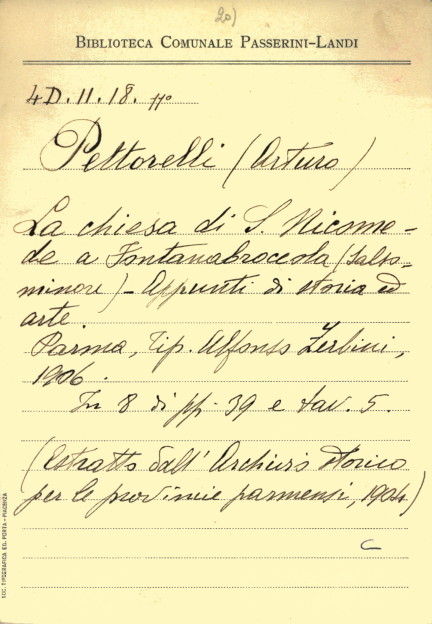 20)
BIBLIOTECA COMUNALE PASSERINI-LANDI
4D.11.18. 11º
Pettorelli (Arturo)
La chiesa di S. Nicome-
de a Fontanabroccola (Salso-
minore) - Appunti di storia ed
arte.
Parma, Tip. Alfonso Zerbini,
1906.
In 8 di pp. 39 e tav. 5.
(Estratto dall'Archivio storico
per le provincie parmensi, 1904)
C
SOC. TIPOGRAFICA ED. PORTA - PIACENZA